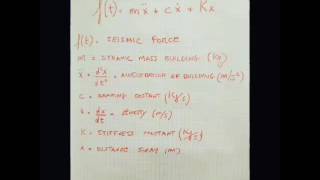 f(t) = mẍ + cẋ + Kx
f(t) = SEISMIC FORCE
m = DYNAMIC MASS BUILDING (Kg)
ẍ = d²x/dt² = ACCELERATION OF BUILDING (m/s²)
C = DAMPING CONSTANT
ẋ = dx/dt = (m/s)
K = STIFFNESS CONSTANT
x = DISTANCE SWAY (m)